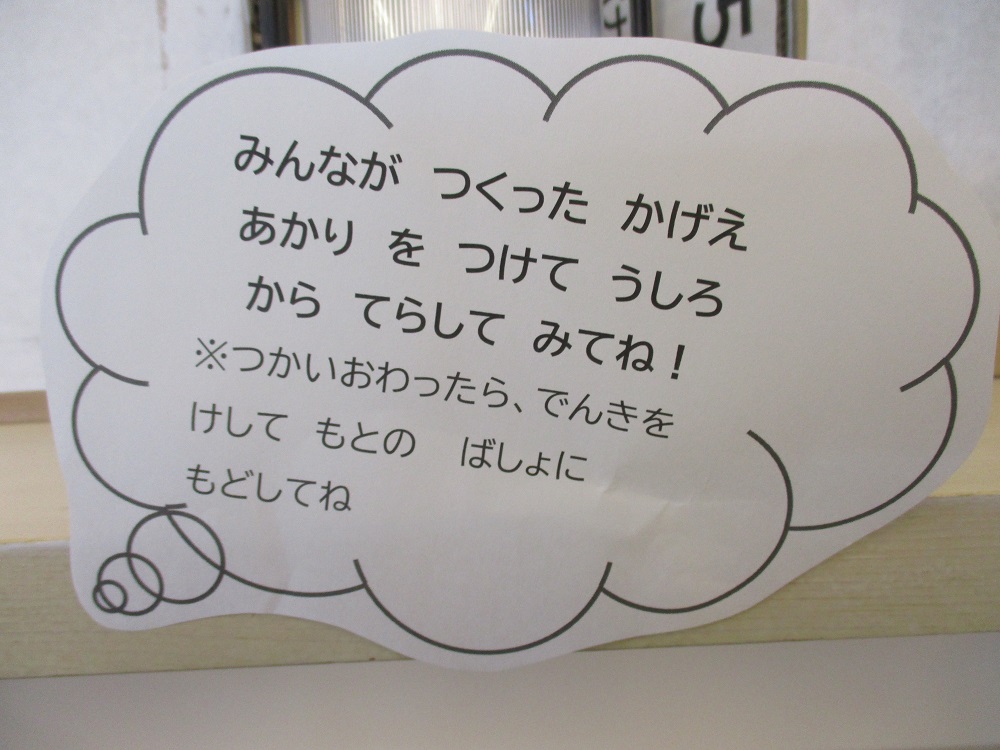 みんなが つくった かげえ
あかり を つけて うしろ
から てらして みてね！
※つかいおわったら、でんきを
けして もとの　ばしょに
もどしてね
5